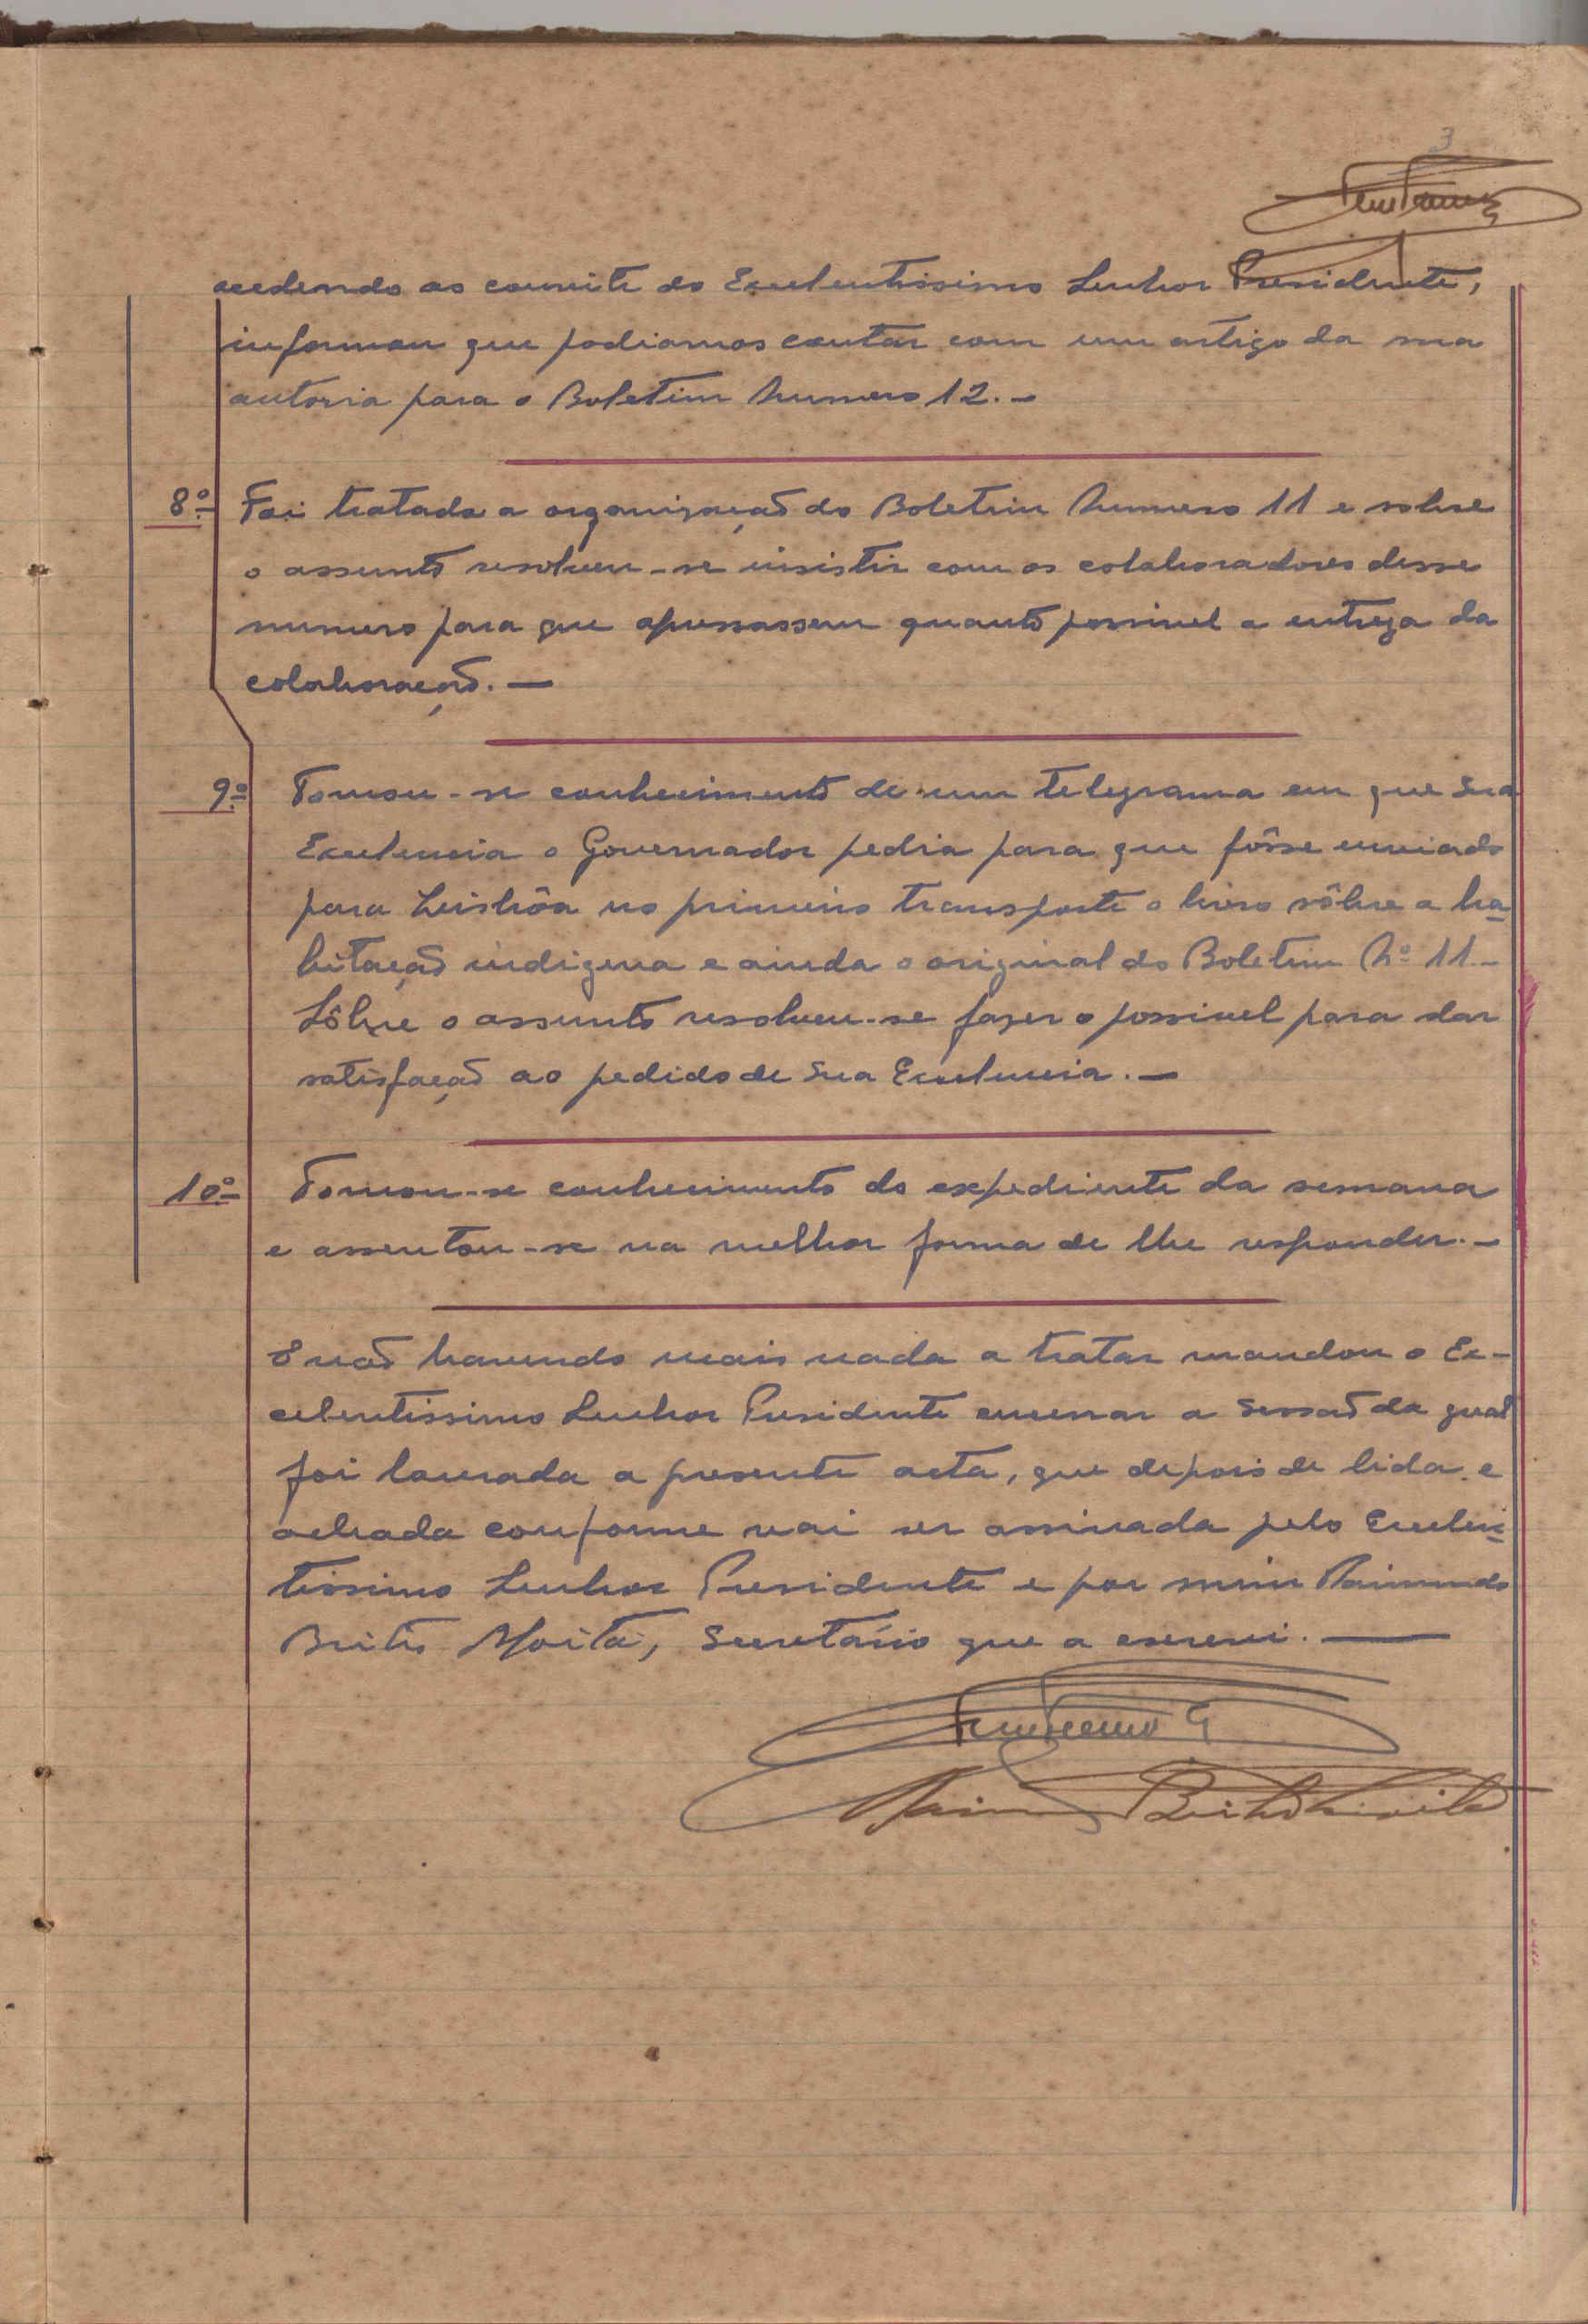 3
acedendo ao convite do Excelentissimo Senhor Presidente,
informou que podiamos contar com um artigo da sua
autoria para o Boletim Numero 12.-
8º Foi tratada a organização do Boletim Numero 11 e sobre
o assunto resolveu-se insistir com os colaboradores desse
numero para que apressassem quanto possivel a entrega da
colaboração.-
9º Tomou-se conhecimento de um telegrama em que Sua
Excelencia o Governador pedia para que fôsse enviado
para Lisbôa no primeiro transporte o livro sôbre a ha-
bitação indigena e ainda o original do Boletim Nº 11-
Sôbre o assunto resolveu-se fazer o possivel para dar
satisfação ao pedido de Sua Excelencia.-
10º Tomou-se conhecimento do expediente da semana
e assentou-se na melhor forma de lhe responder.-
E não havendo mais nada a tratar mandou o Ex-
celentissimo Senhor Presidente encerrar a Sessão da qual
foi lavrada a presente acta, que depois de lida e
achada conforme vai ser assinada pelo Excelen-
tissimo Senhor Presidente e por mim Raimundo
Brito Moita, Secretário que a escrevi.-